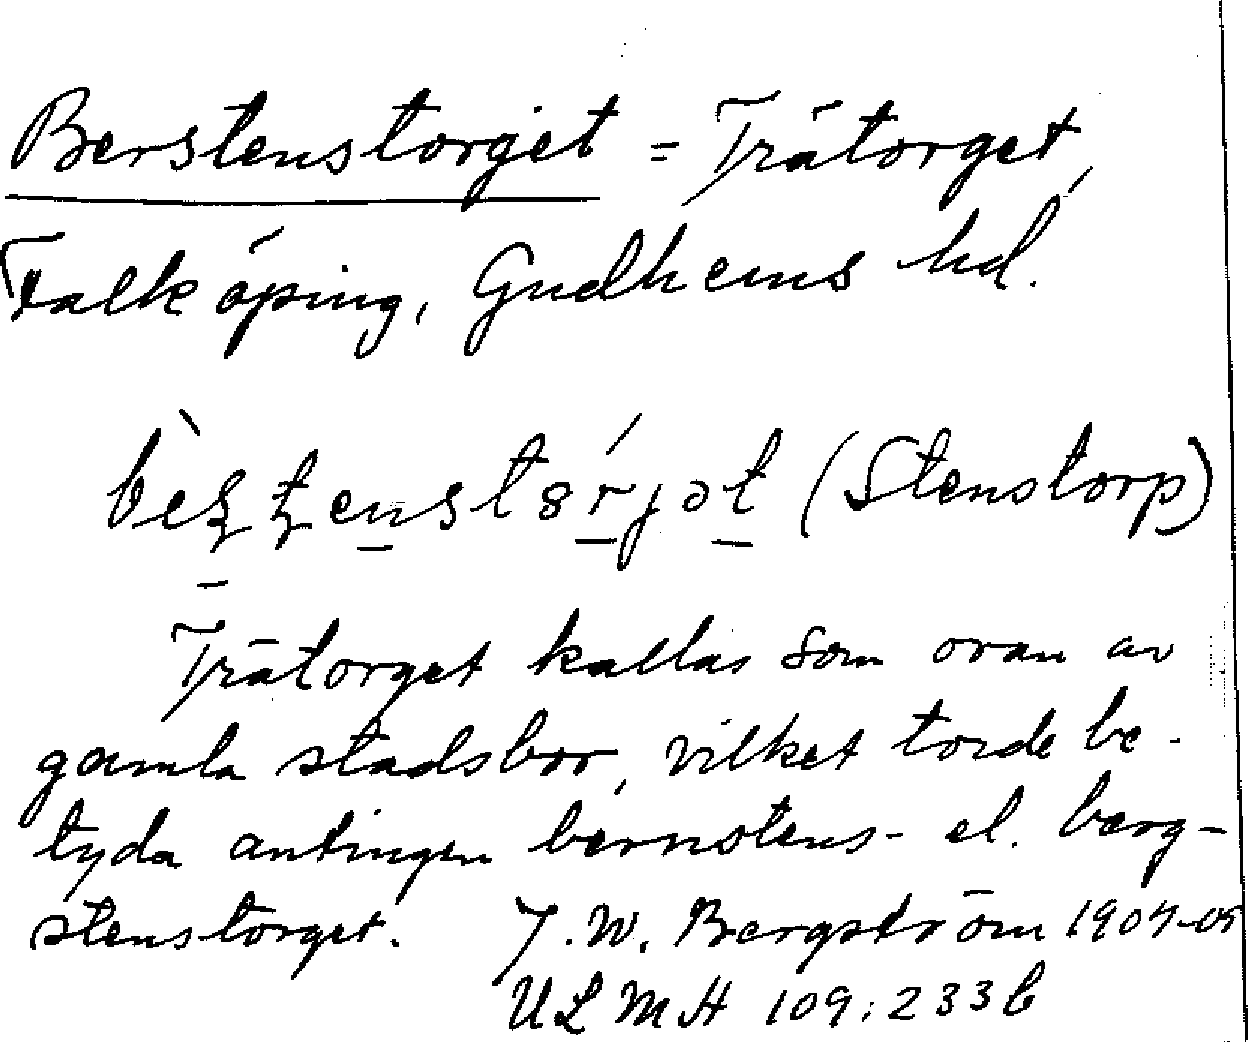 Berstenstorget = Trätorget,
Falköping, Gudhems hd.
(Stenstorp)
Trätorget kallas som ovan av
gamla stadsbor, vilket torde be-
tyda antingen bernstens- el. berg-
stenstorget. J. W. Bergström 1904-05
ULMH 109:233b